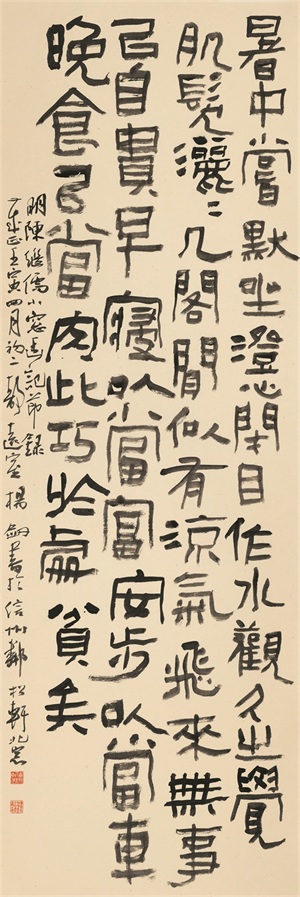 暑中嘗默坐澄心閉目作水觀久之覺
肌髮灑〻几閣間似有涼氣飛來無事
以自貴早寢以當富安步以當車
晚食以當肉此巧於處貧矣
明陳繼儒小窗幽記節錄
壬寅四月初二韻遠室楊劍書於信州鄰松軒北窗